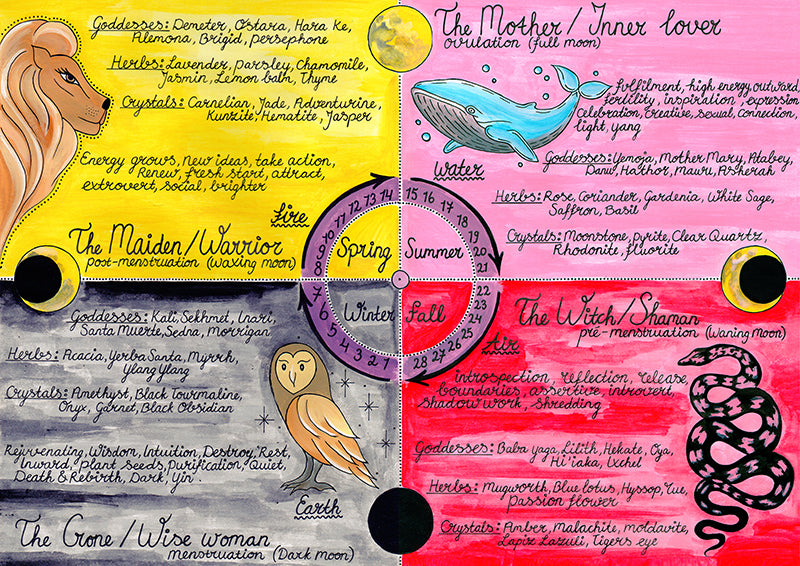 Goddesses: Demeter, Ostara, Hara Ke,
Alemona, Brigid, persephone
Herbs: Lavender, parsley, Chamomile,
Jasmin, Lemon balm, Thyme
Crystals: Carnelian, Jade, Adventurine,
Kunzite, Hematite, Jasper
Energy grows, new ideas, take action,
Renew, fresh start, attract,
extrovert, social, brighter
fire
The Maiden/Warrior
post-menstruation (Waxing moon)
The Mother/Inner lover
ovulation (full moon)
fulfilment, high energy, outward,
fertility, inspiration, expression
Celebration, creative, sexual, connection,
light, yang
Water
Goddesses: Yemoja, Mother Mary, Atabey,
Danu, Hathor, mauri, Asherah
Herbs: Rose, coriander, Gardenia, White Sage,
Saffron, Basil
Crystals: Moonstone, pyrite, Clear Quartz,
Rhodonite, fluorite
8 9 10 11 12 13 14
15 16 17 18 19 20 21
Spring
Summer
Winter
Fall
7 6 5 4 3 2 1
22 23 24 25 26 27 28
Goddesses: Kali, Sekhmet, Inari,
Santa Muerte, Sedna, Morrigan
Herbs: Acacia, Yerba Santa, Myrrh,
Ylang Ylang
Crystals: Amethyst, Black Tourmaline,
Onyx, Garnet, Black Obsidian
Rejuvenating, Wisdom, Intuition, Destroy, Rest,
Inward, plant seeds, purification, Quiet,
Death & Rebirth, Dark, Yin
Earth
The Crone/Wise woman
menstruation (Dark moon)
The Witch/Shaman
pre-menstruation (Waning Moon)
Air
introspection, reflection, release,
boundaries, assertive, introvert,
shadow work, shredding
Goddesses: Baba yaga, Lilith, Hekate, Oya,
Hi'iaka, Ixchel
Herbs: Mugworth, Blue lotus, Hyssop, rue,
passion flower
Crystals: Amber, malachite, moldavite,
Lapiz Lazuli, Tigers eye